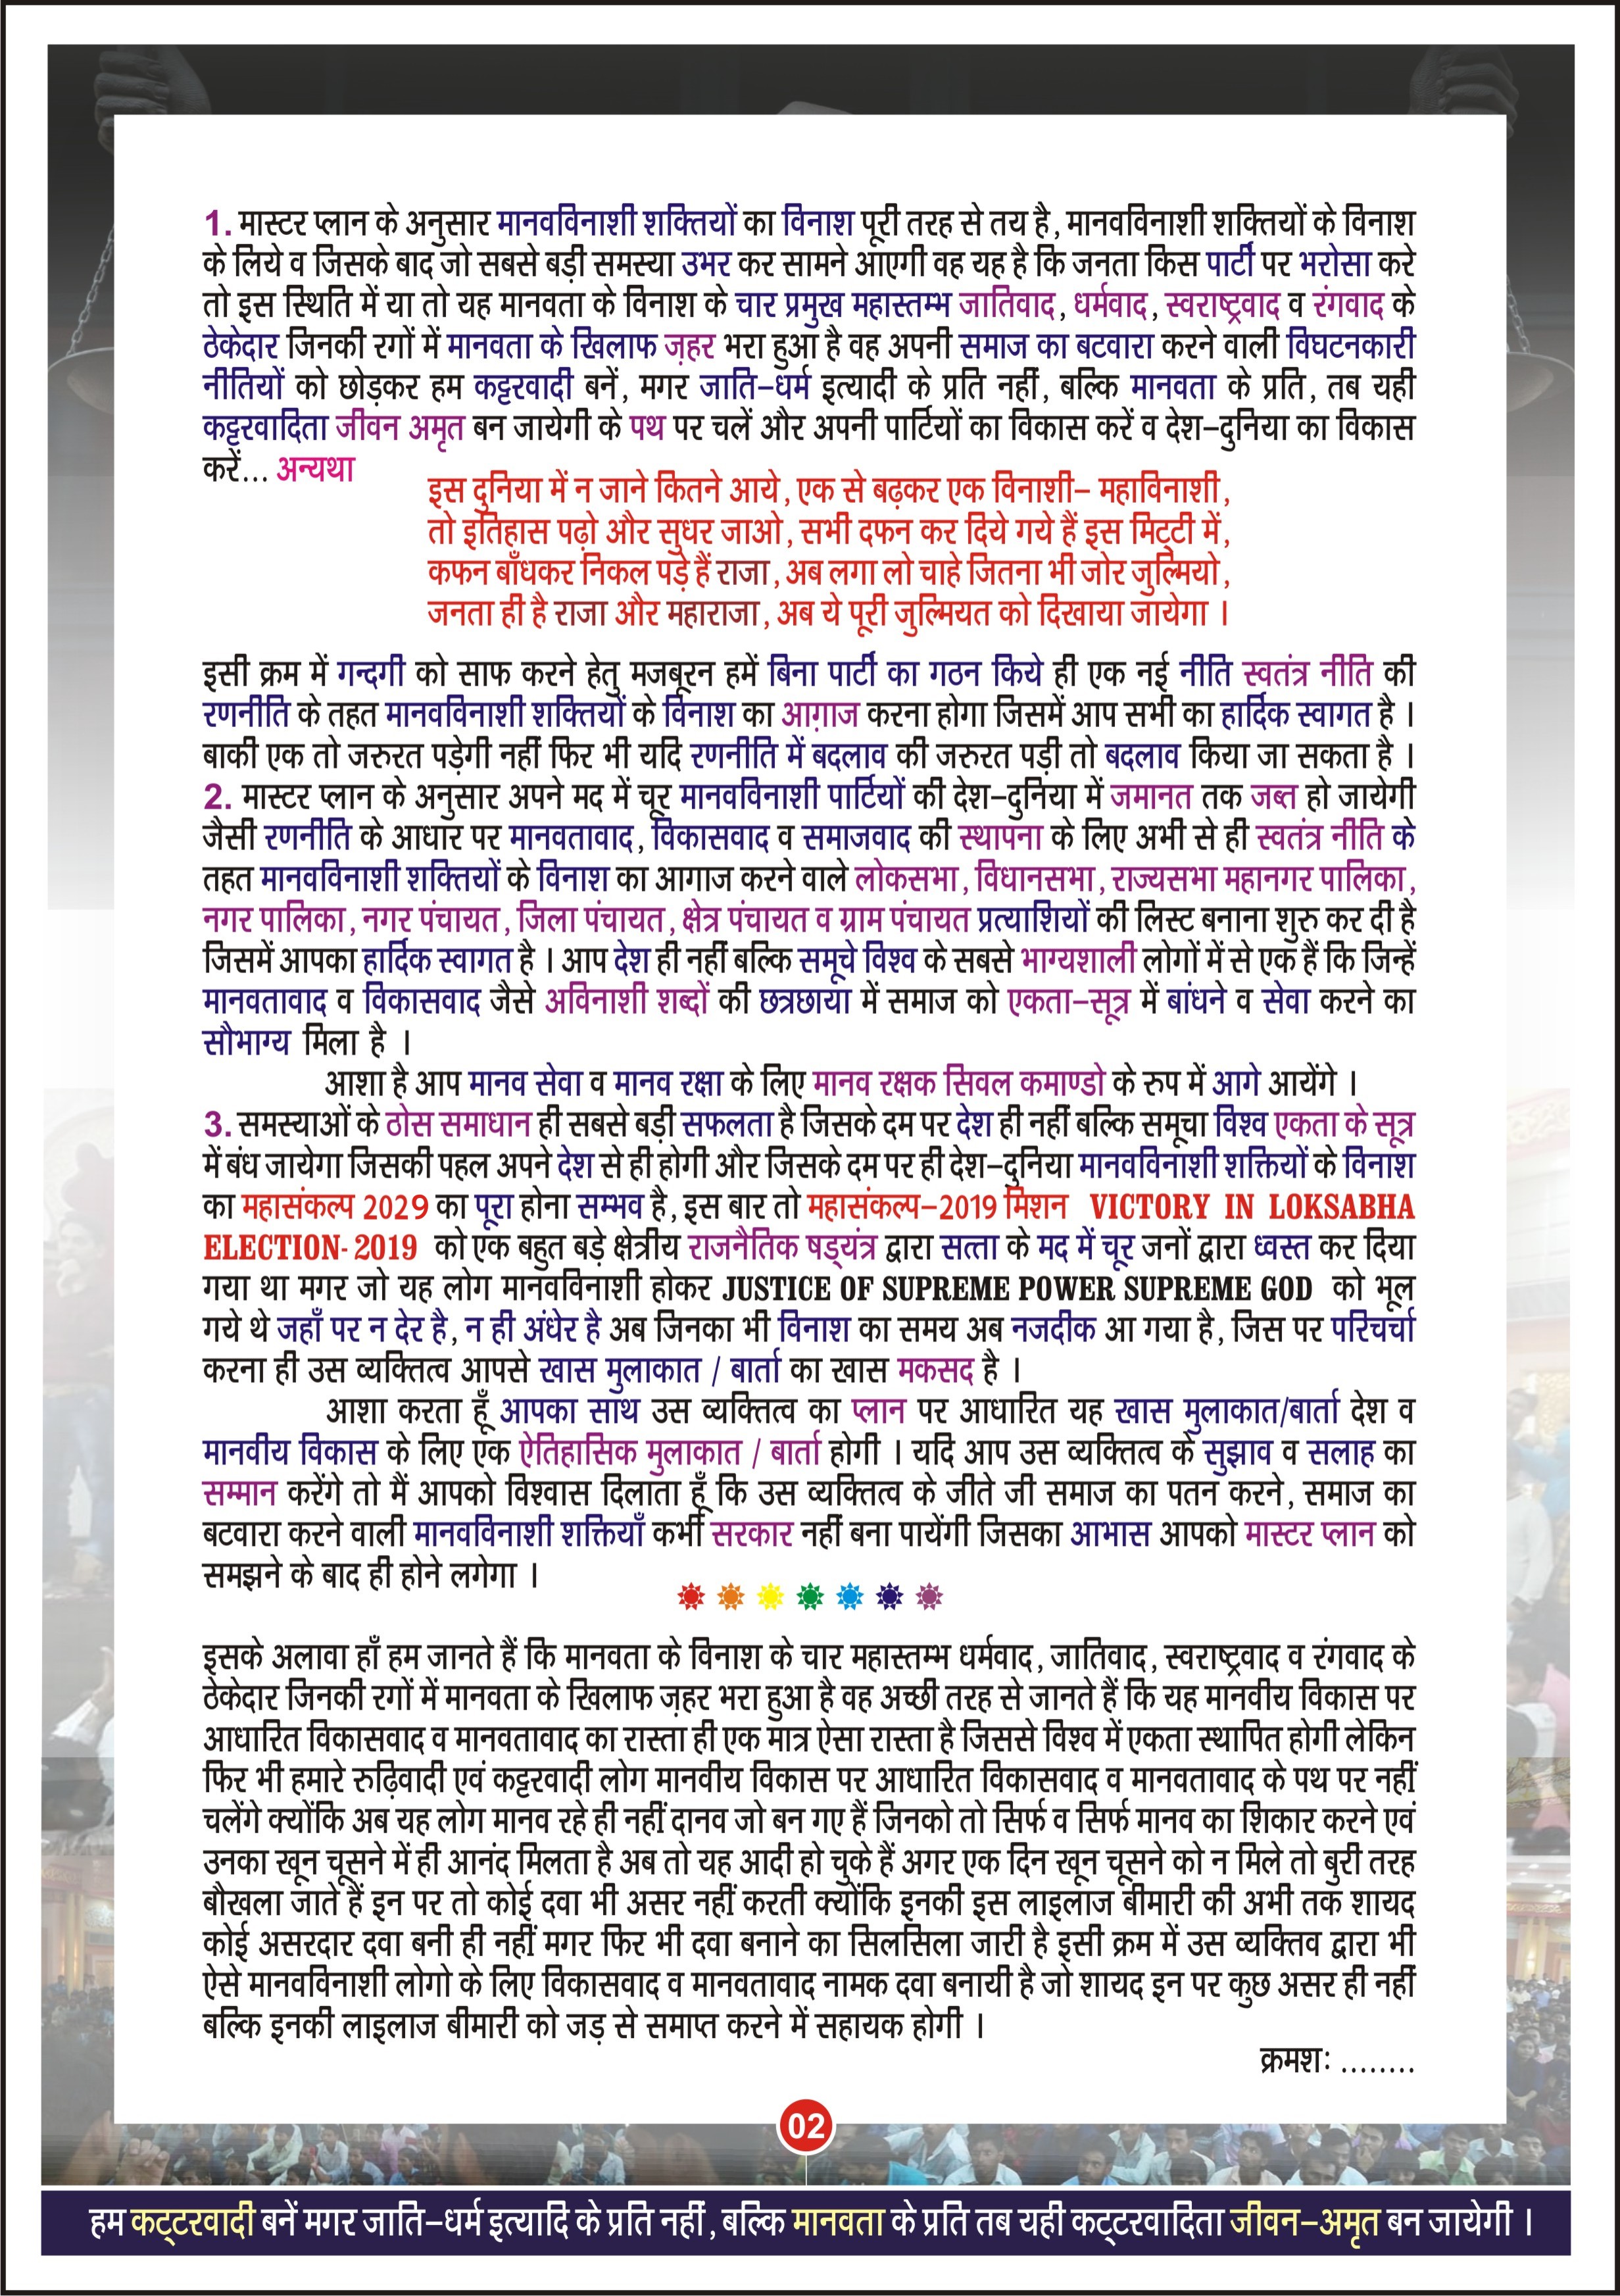 1. मास्टर प्लान के अनुसार मानवविनाशी शक्तियों का विनाश पूरी तरह से तय है, मानवविनाशी शक्तियों के विनाश
के लिये व जिसके बाद जो सबसे बड़ी समस्या उभर कर सामने आएगी वह यह है कि जनता किस पार्टी पर भरोसा करे
तो इस स्थिति में या तो यह मानवता के विनाश के चार प्रमुख महास्तम्भ जातिवाद, धर्मवाद, स्वराष्ट्रवाद व रंगवाद के
ठेकेदार जिनकी रगों में मानवता के खिलाफ ज़हर भरा हुआ है वह अपनी समाज का बटवारा करने वाली विघटनकारी
नीतियों को छोड़कर हम कट्टरवादी बनें, मगर जाति–धर्म इत्यादी के प्रति नहीं, बल्कि मानवता के प्रति, तब यही
कट्टरवादिता जीवन अमृत बन जायेगी के पथ पर चलें और अपनी पार्टियों का विकास करें व देश–दुनिया का विकास
करें... अन्यथा
इस दुनिया में न जाने कितने आये, एक से बढ़कर एक विनाशी– महाविनाशी,
तो इतिहास पढ़ो और सुधर जाओ, सभी दफन कर दिये गये हैं इस मिट्टी में,
कफन बाँधकर निकल पड़े हैं राजा, अब लगा लो चाहे जितना भी जोर जुल्मियो,
जनता ही है राजा और महाराजा, अब ये पूरी जुल्मियत को दिखाया जायेगा ।
इसी क्रम में गन्दगी को साफ करने हेतु मजबूरन हमें बिना पार्टी का गठन किये ही एक नई नीति स्वतंत्र नीति की
रणनीति के तहत मानवविनाशी शक्तियों के विनाश का आग़ाज करना होगा जिसमें आप सभी का हार्दिक स्वागत है ।
बाकी एक तो जरुरत पड़ेगी नहीं फिर भी यदि रणनीति में बदलाव की जरुरत पड़ी तो बदलाव किया जा सकता है ।
2. मास्टर प्लान के अनुसार अपने मद में चूर मानवविनाशी पार्टियों की देश–दुनिया में जमानत तक जब्त हो जायेगी
जैसी रणनीति के आधार पर मानवतावाद, विकासवाद व समाजवाद की स्थापना के लिए अभी से ही स्वतंत्र नीति के
तहत मानवविनाशी शक्तियों के विनाश का आगाज करने वाले लोकसभा, विधानसभा, राज्यसभा महानगर पालिका,
नगर पालिका, नगर पंचायत, जिला पंचायत, क्षेत्र पंचायत व ग्राम पंचायत प्रत्याशियों की लिस्ट बनाना शुरु कर दी है
जिसमें आपका हार्दिक स्वागत है । आप देश ही नहीं बल्कि समूचे विश्व के सबसे भाग्यशाली लोगों में से एक हैं कि जिन्हें
मानवतावाद व विकासवाद जैसे अविनाशी शब्दों की छत्रछाया में समाज को एकता–सूत्र में बांधने व सेवा करने का
सौभाग्य मिला है ।
आशा है आप मानव सेवा व मानव रक्षा के लिए मानव रक्षक सिवल कमाण्डो के रुप में आगे आयेंगे ।
3. समस्याओं के ठोस समाधान ही सबसे बड़ी सफलता है जिसके दम पर देश ही नहीं बल्कि समूचा विश्व एकता के सूत्र
में बंध जायेगा जिसकी पहल अपने देश से ही होगी और जिसके दम पर ही देश–दुनिया मानवविनाशी शक्तियों के विनाश
का महासंकल्प 2029 का पूरा होना सम्भव है, इस बार तो महासंकल्प–2019 मिशन VICTORY IN LOKSABHA
ELECTION- 2019 को एक बहुत बड़े क्षेत्रीय राजनैतिक षड्यंत्र द्वारा सत्ता के मद में चूर जनों द्वारा ध्वस्त कर दिया
गया था मगर जो यह लोग मानवविनाशी होकर JUSTICE OF SUPREME POWER SUPREME GOD को भूल
गये थे जहाँ पर न देर है, न ही अंधेर है अब जिनका भी विनाश का समय अब नजदीक आ गया है, जिस पर परिचर्चा
करना ही उस व्यक्तित्व आपसे खास मुलाकात / बार्ता का खास मकसद है ।
आशा करता हूँ आपका साथ उस व्यक्तित्व का प्लान पर आधारित यह खास मुलाकात/बार्ता देश व
मानवीय विकास के लिए एक ऐतिहासिक मुलाकात / बार्ता होगी । यदि आप उस व्यक्तित्व के सुझाव व सलाह का
सम्मान करेंगे तो मैं आपको विश्वास दिलाता हूँ कि उस व्यक्तित्व के जीते जी समाज का पतन करने, समाज का
बटवारा करने वाली मानवविनाशी शक्तियाँ कभी सरकार नहीं बना पायेंगी जिसका आभास आपको मास्टर प्लान को
समझने के बाद ही होने लगेगा ।
इसके अलावा हाँ हम जानते हैं कि मानवता के विनाश के चार महास्तम्भ धर्मवाद, जातिवाद, स्वराष्ट्रवाद व रंगवाद के
ठेकेदार जिनकी रगों में मानवता के खिलाफ ज़हर भरा हुआ है वह अच्छी तरह से जानते हैं कि यह मानवीय विकास पर
आधारित विकासवाद व मानवतावाद का रास्ता ही एक मात्र ऐसा रास्ता है जिससे विश्व में एकता स्थापित होगी लेकिन
फिर भी हमारे रुढ़िवादी एवं कट्टरवादी लोग मानवीय विकास पर आधारित विकासवाद व मानवतावाद के पथ पर नहीं
चलेंगे क्योंकि अब यह लोग मानव रहे ही नहीं दानव जो बन गए हैं जिनको तो सिर्फ व सिर्फ मानव का शिकार करने एवं
उनका खून चूसने में ही आनंद मिलता है अब तो यह आदी हो चुके हैं अगर एक दिन खून चूसने को न मिले तो बुरी तरह
बौखला जाते हैं इन पर तो कोई दवा भी असर नहीं करती क्योंकि इनकी इस लाइलाज बीमारी की अभी तक शायद
कोई असरदार दवा बनी ही नहीं मगर फिर भी दवा बनाने का सिलसिला जारी है इसी क्रम में उस व्यक्तिव द्वारा भी
ऐसे मानवविनाशी लोगो के लिए विकासवाद व मानवतावाद नामक दवा बनायी है जो शायद इन पर कुछ असर ही नहीं
बल्कि इनकी लाइलाज बीमारी को जड़ से समाप्त करने में सहायक होगी ।
क्रमशः ........
02
हम कट्टरवादी बनें मगर जाति–धर्म इत्यादि के प्रति नहीं, बल्कि मानवता के प्रति तब यही कट्टरवादिता जीवन–अमृत बन जायेगी ।